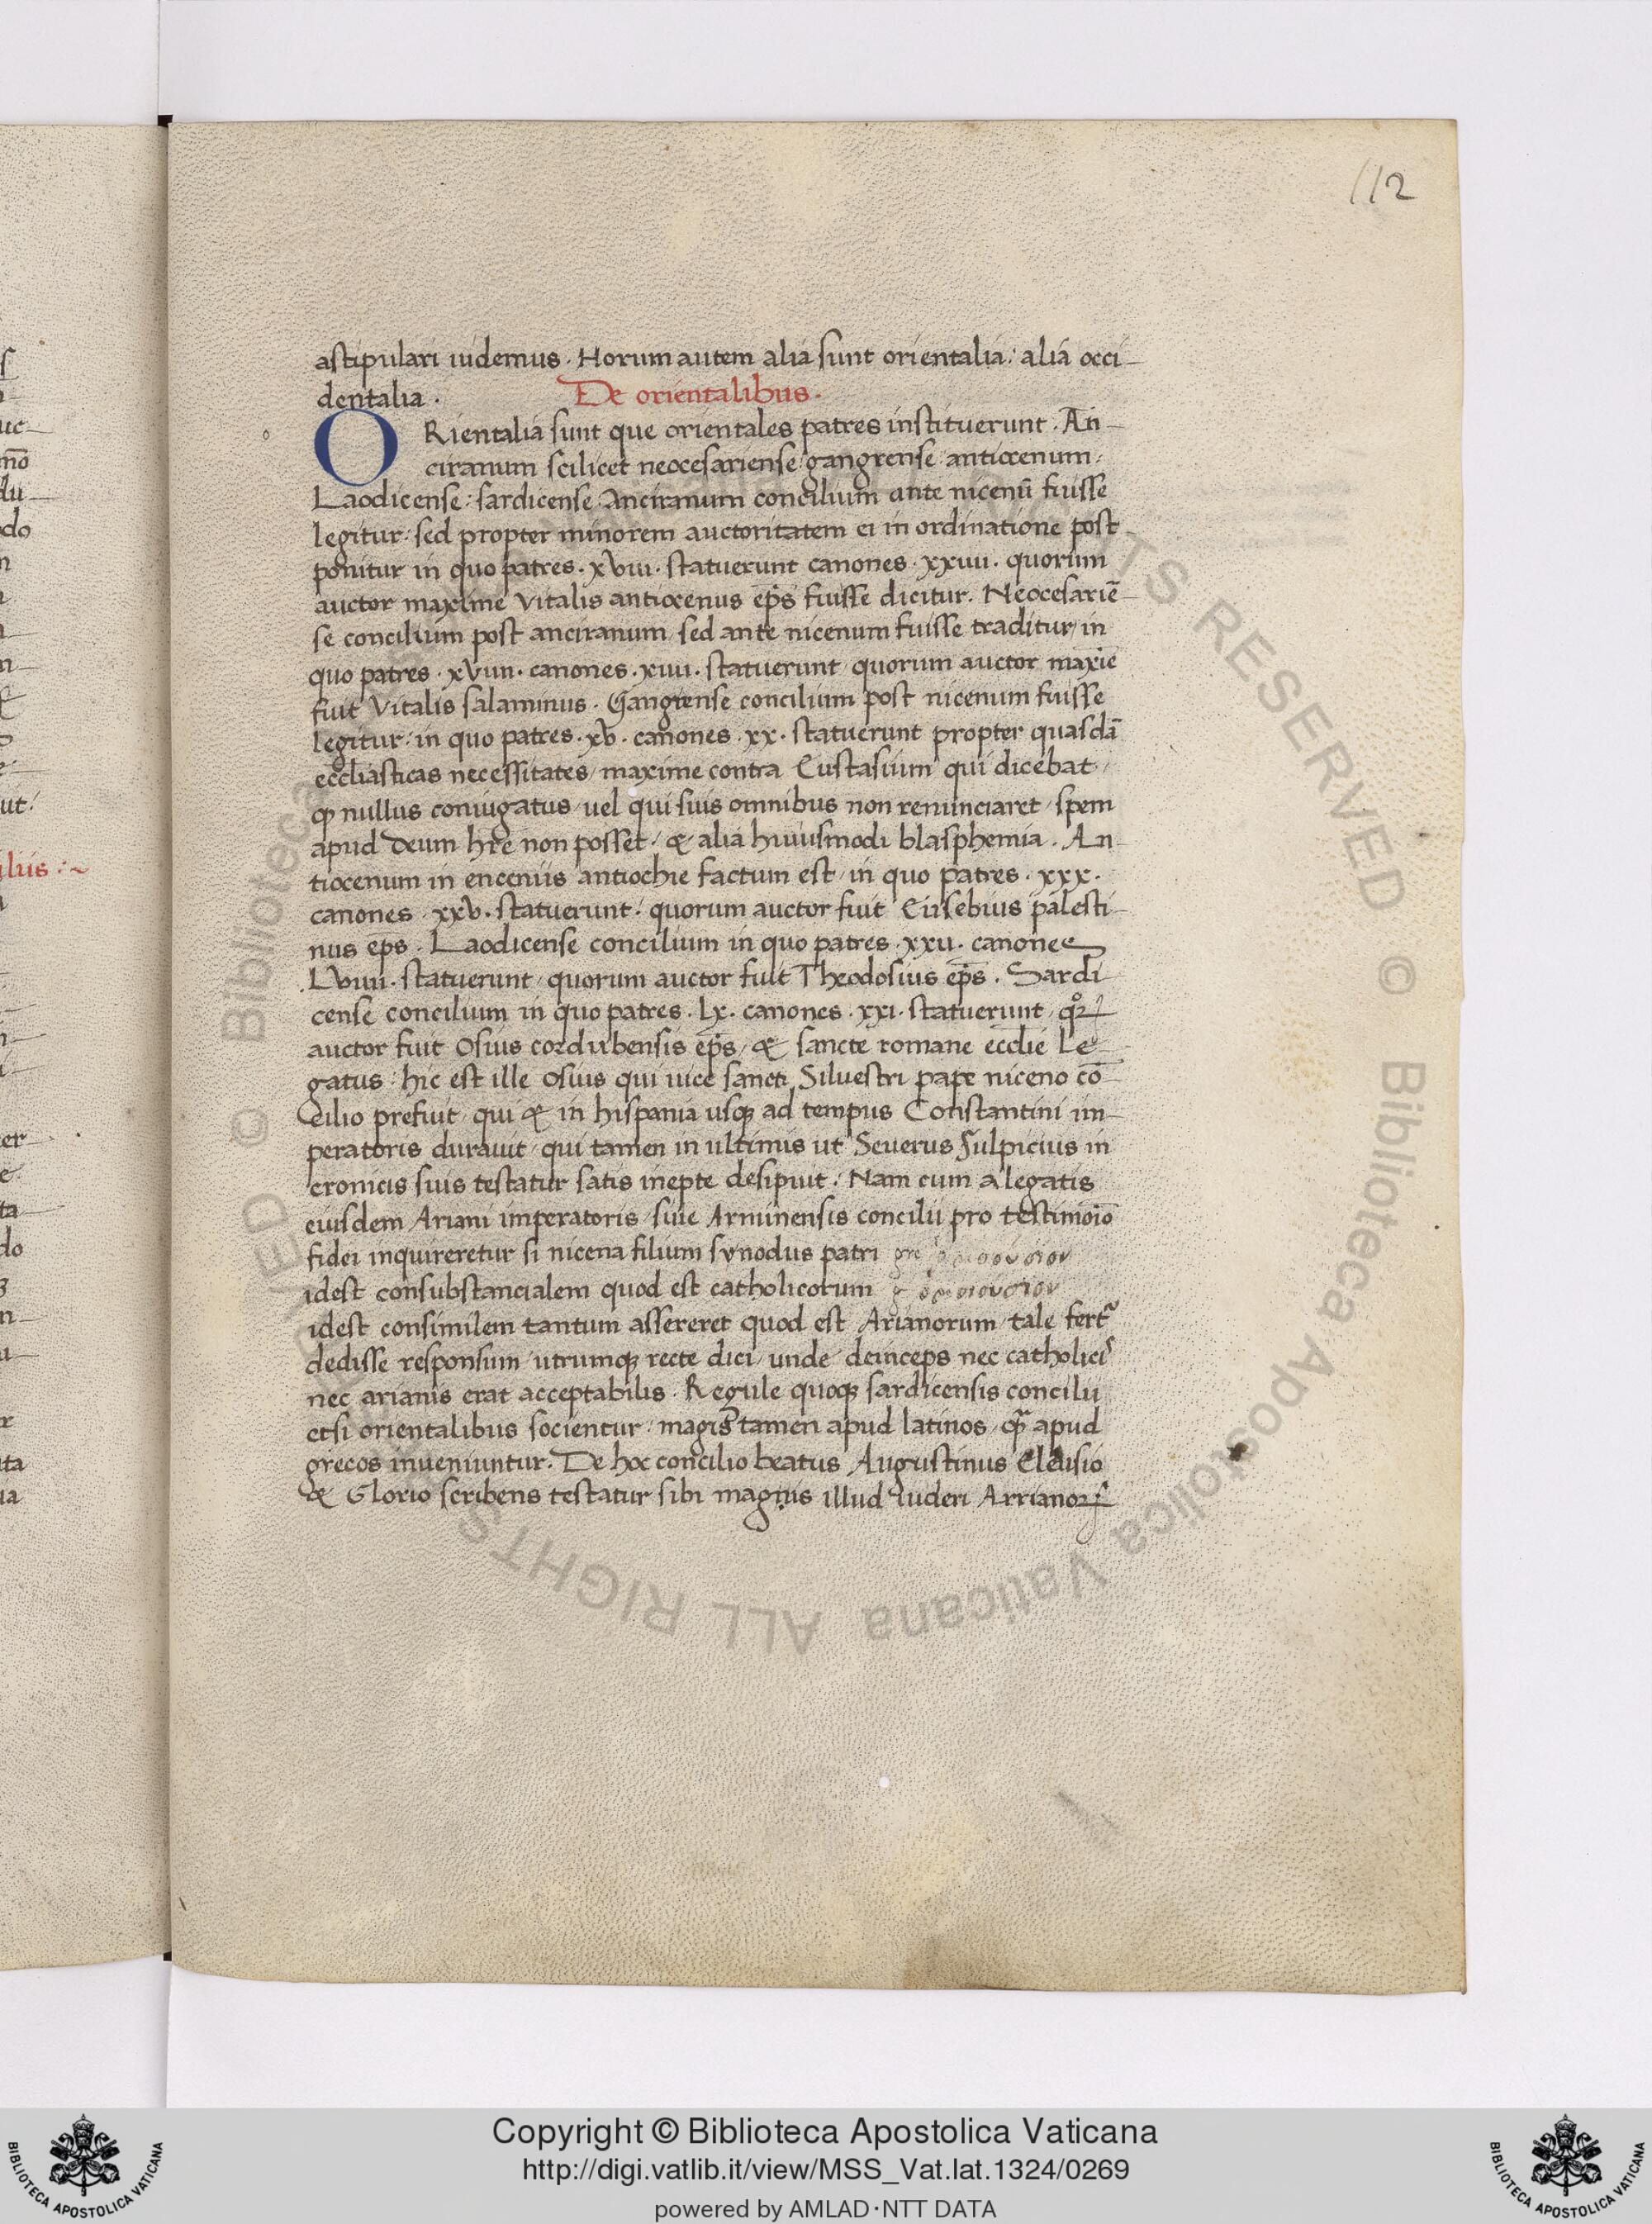 112
astipulari uidemus · Horum autem alia sunt orientalia: alia occi-
dentalia · De orientalibus ·
ORientalia sunt que orientales patres instituerunt . An-
ciranum scilicet neocesariense gangrense antiocenum:
Laodicense: sardicense · Anciranum concilium ante nicenū fuisse
legitur: sed propter minorem auctoritatem ei in ordinatione post-
ponitur in quo patres · xviii · statuerunt canones · xxiiii · quorum
auctor maxime Vitalis antiocenus ep̄s fuisse dicitur. Neocesariē-
se concilium post anciranum sed ante nicenum fuisse traditur in
quo patres · xviiii · canones · xiiii · statuerunt quorum auctor maxiē
fuit Vitalis salaminus · Gangrense concilium post nicenum fuisse
legitur: in quo patres · xv · canones · xx · statuerunt propter quasdā
eccliasticas necessitates, maxime contra Eustasium qui dicebat,
ꝙ nullus coniugatus, uel qui suis omnibus non renunciaret, spem
apud Deum hr̄e non posset, & alia huiusmodi blasphemia . An-
tiocenum in enceniis antiochie factum est, in quo patres · xxx ·
canones · xxv · statuerunt: quorum auctor fuit Eusebius palesti-
nus ep̄s · Laodicense concilium in quo patres · xxii · canones
Lviiii · statuerunt, quorum auctor fuit Theodosius ep̄s . Sardi-
cense concilium in quo patres · Lx · canones · xxi · statuerunt, quoꝝ
auctor fuit Osius cordubensis ep̄s, & sancte romane eccl̄ie Le-
gatus: hic est ille Osius qui uice sancti Siluestri pape niceno cō-
cilio prefuit, qui & in hispania usqꝫ ad tempus Constantini im-
peratoris durauit, qui tamen in ultimis ut Seuerus Sulpicius in
cronicis suis testatur satis inepte desipuit: Nam cum a legatis
eiusdem Ariani imperatoris, siue Arminensis concilii pro testimoīo
fidei inquireretur si nicena filium synodus patri ὁμοούσιον
idest consubstancialem quod est catholicorum ὁμοιούσιον
idest consimilem tantum assereret quod est Arianorum, tale fert᷑
dedisse responsum, utrumqꝫ recte dici, unde deinceps nec catholicis
nec arianis erat acceptabilis · Regule quoqꝫ sardicensis concilii
etsi orientalibus socientur, magis tamen apud latinos, qͣꝫ apud
grecos inueniuntur. De hoc concilio beatus Augustinus Eleusio
& Glorio scribens testatur sibi magnis illud uideri Arrianoꝝ
Copyright © Biblioteca Apostolica Vaticana
http://digi.vatlib.it/view/MSS_Vat.lat.1324/0269
powered by AMLAD·NTT DATA